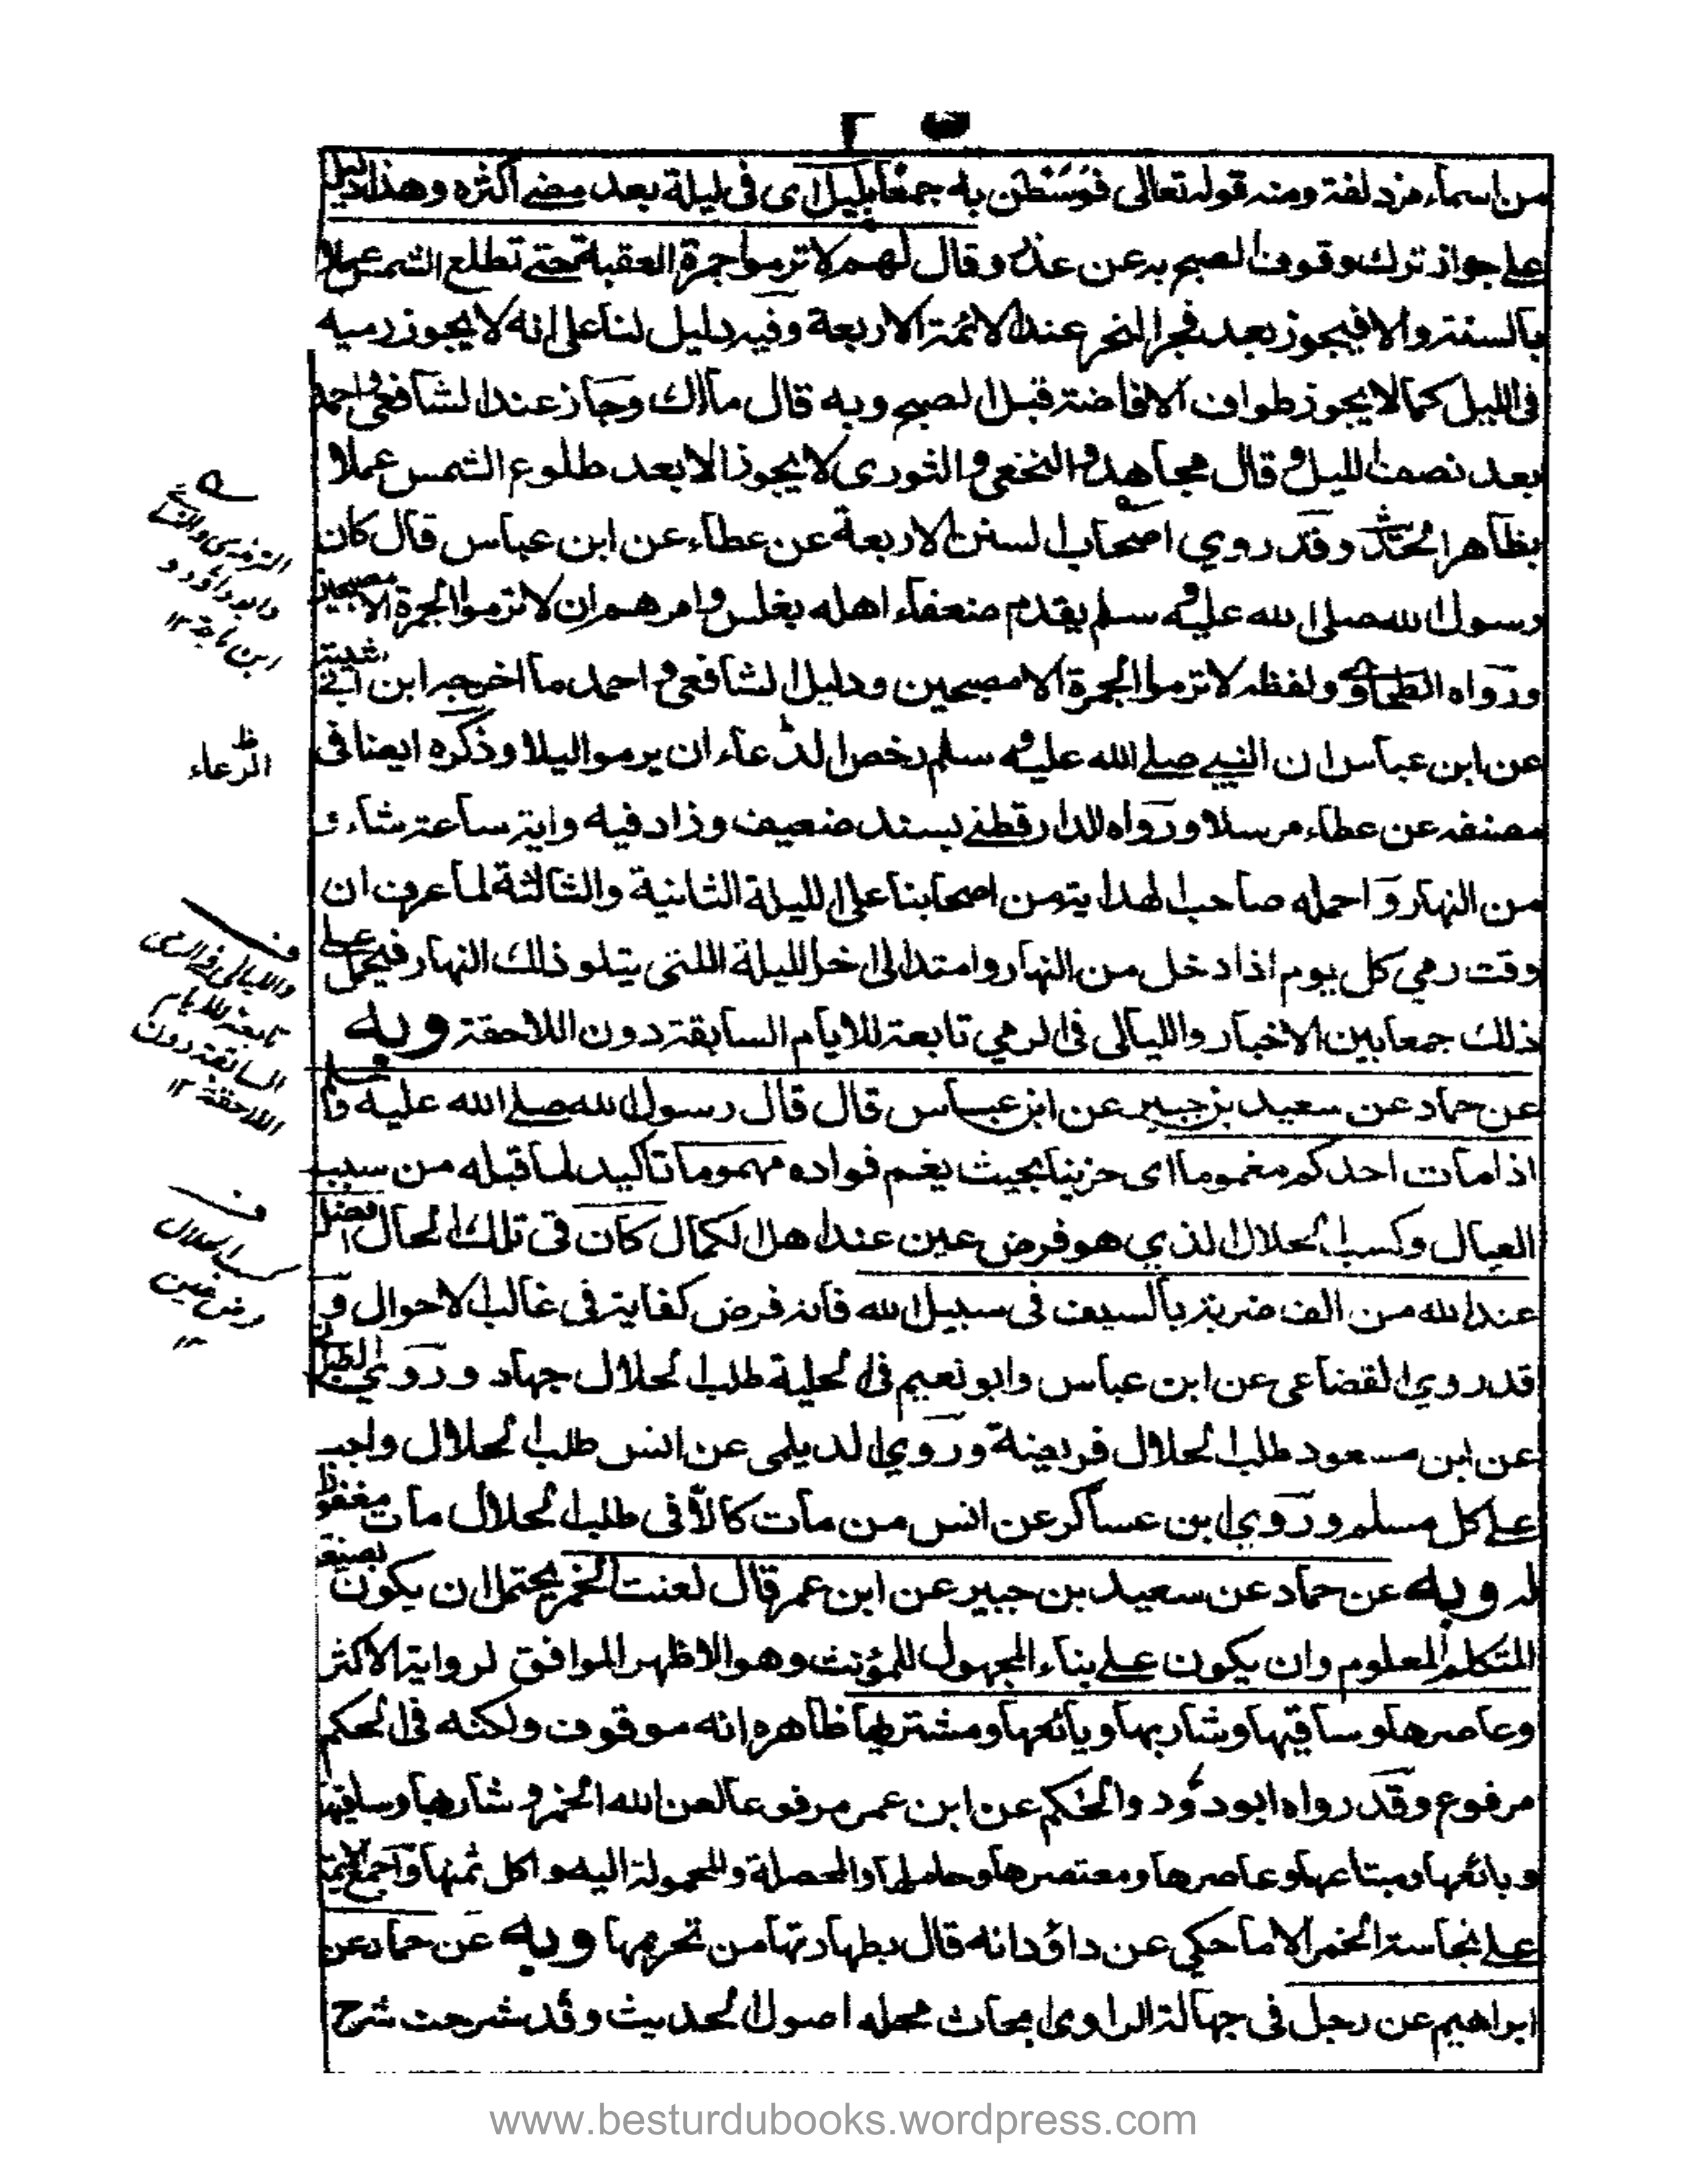 من اسماء مزدلفة ومنه قوله تعالى فوسطن به جمعا بليل اى فى ليلة بعد مضے اكثره وهذا دليل
علے جواز ترك وقوف الصبح به عن عذر وقال لهم لا ترموا جمرة العقبة حتے تطلع الشمس عملا
بالسنة والا فيجوز بعد فجر النحر عند الائمة الاربعة وفيه دليل لنا على انه لا يجوز رميه
فى الليل كما لا يجوز طواف الافاضة قبل الصبح وبه قال مالك وجاز عند الشافعى واحمد
بعد نصف الليل وقال مجاهد والنخعى والثورى لا يجوز الا بعد طلوع الشمس عملا
بظاهر الحديث وقد روي اصحاب السنن الاربعة عن عطاء عن ابن عباس قال كان
رسول الله صلى الله عليه وسلم يقدم ضعفاء اهله بغلس وامرهم ان لا ترموا الجمرة الا مصبحين
ورواه الطحاوے ولفظه لا ترموا الجمرة الا مصبحين ودليل الشافعى واحمد ما اخرجه ابن ابے شيبة
عن ابن عباس ان النبے صلے الله عليه وسلم رخص لدعاء ان يرموا ليلا وذكره ايضا فى
مصنفه عن عطاء مرسلا ورواه الدارقطنے بسند ضعيف وزاد فيه واية ساعة شاء و
من النهار واحمله صاحب الهداية من اصحابنا على الليلة الثانية والثالثة لما عرف ان
وقت رمي كل يوم اذا دخل من النهار وامتد الى اخر الليلة اللتى يتلو ذلك النهار فيحمل علے
ذلك جمعا بين الاخبار والليالى فى الرمي تابعة للايام السابقة دون اللاحقة وبه
عن حماد عن سعيد بن جبير عن ابن عباس قال قال رسول الله صلے الله عليه وسلم
اذا مات احدكم مغموما اى حزينا بحيث يغم فواده مهموما تاكيد لما قبله من سبب
العيال وكسب الحلال الذي هو فرض عين عند اهل الكمال كان فى تلك الحال افضل
عند الله من الف ضربة بالسيف فى سبيل الله فانه فرض كفاية فى غالب الاحوال و
قد روي القضاعى عن ابن عباس وابو نعيم فى الحلية طلب الحلال جهاد وروي الطبرانى
عن ابن مسعود طلب الحلال فريضة وروي الديلمى عن انس طلب الحلال واجب
علے كل مسلم وروي ابن عساكر عن انس من مات كالا فى طلب الحلال مات مغفورا
له وبه عن حماد عن سعيد بن جبير عن ابن عمر قال لعنت الخمر يحتمل ان يكون بصيغة
المتكلم المعلوم وان يكون علے بناء المجهول للمؤنث وهو الاظهر الموافق لرواية الاكثر
وعاصرها وساقيها وشاربها وبائعها ومشتريها ظاهره انه موقوف ولكنه فى الحكم
مرفوع وقد رواه ابو دؤد والحكم عن ابن عمر مرفوعا لعن الله الخمر وشاربها وساقيها
وبائعها ومبتاعها وعاصرها ومعتصرها وحاملها والمحصلة والمحمولة اليه واكل ثمنها واجمع الائمة
علے نجاسة الخمر الا ما حكي عن داؤد انه قال بطهارتها من تحريمها وبه عن حماد عن
ابراهيم عن رجل فى جهالة الراوى ابحاث محله اصول الحديث وقد شرحت شرح
الترمذى والنسائے
وابو داؤد و
ابن ماجة ١٢
الرعاء
ف
والليالى فى الرمى
تابعة للايام
السابقة دون
اللاحقة ١٢
ف
كسب الحلال
فرض عين
١٢
www.besturdubooks.wordpress.com